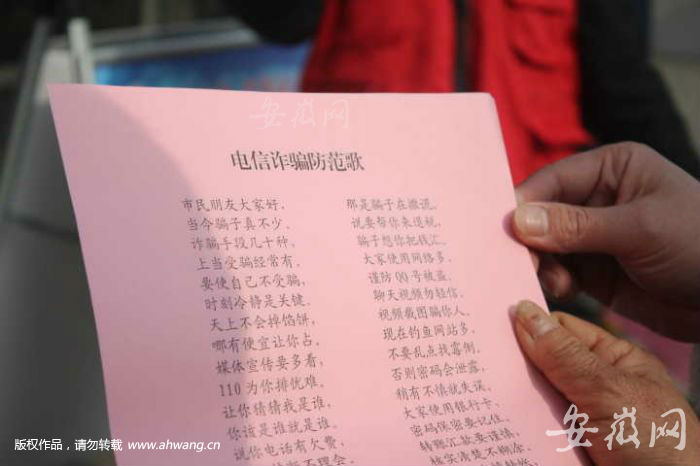 安徽网
电信诈骗防范歌
市民朋友大家好，
当今骗子真不少，
诈骗手段几十种，
上当受骗经常有。
要使自己不受骗，
时刻冷静是关键。
天上不会掉馅饼，
哪有便宜让你占，
媒体宣传要多看；
110为你排忧难。
让你猜猜我是谁，
你该是谁就是谁。
说你电话有欠费，
那是骗子在撒谎。
说要帮你来退税，
骗子想你把钱汇。
大家使用网络多，
谨防QQ号被盗，
聊天视频勿轻信，
视频截图骗你人。
现在钓鱼网站多，
不要乱点找霉倒，
否则密码会泄露，
稍有不慎就失误。
大家使用银行卡，
密码保密要记住，
转账汇款要谨慎，
核实清楚不糊涂。
安徽网
版权作品，请勿转载 www.ahwang.cn